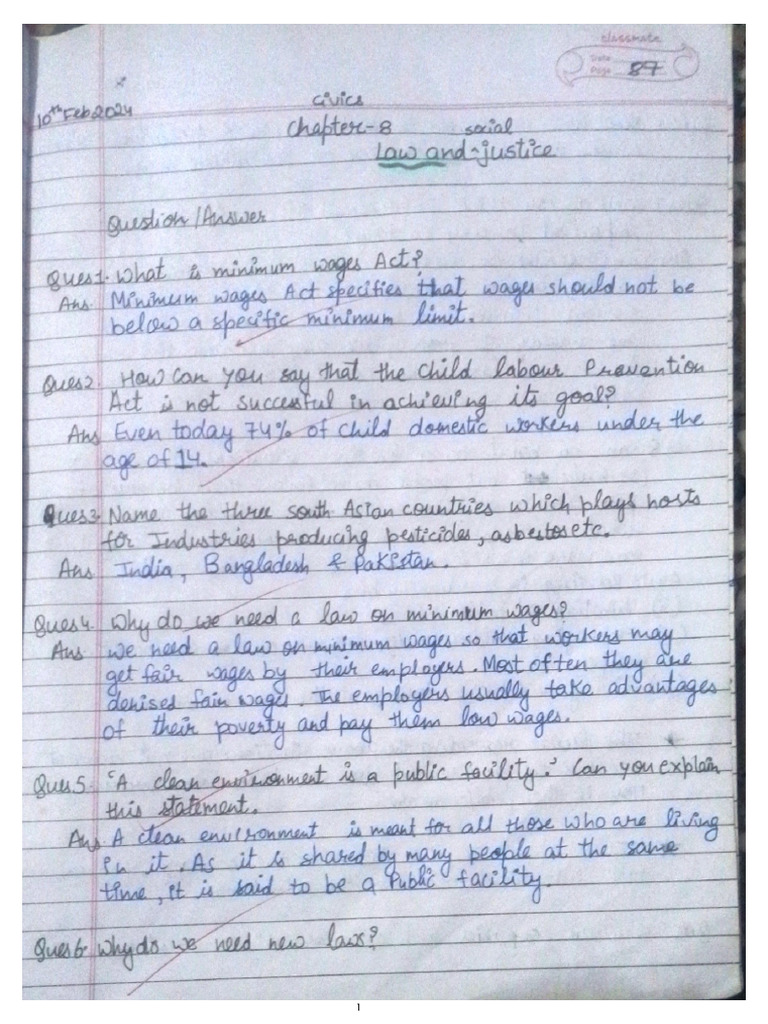 classmate
Date
Page 87
10th Feb 2024
Civics
Chapter-8 social
Law and justice
Question/Answer
Ques1. What is minimum wages Act?
Ans. Minimum wages Act specifies that wages should not be
below a specific minimum limit.
Ques2. How can you say that the Child labour Prevention
Act is not successful in achieving its goal?
Ans Even today 74% of child domestic workers under the
age of 14.
Ques3. Name the three south Asian countries which plays hosts
for Industries producing pesticides, asbestos etc.
Ans India, Bangladesh & Pakistan.
Ques4. Why do we need a law on minimum wages?
Ans we need a law on minimum wages so that workers may
get fair wages by their employers. Most often they are
denised fain wages. The employers usually take advantages
of their poverty and pay them low wages.
Ques.5. 'A clean environment is a public facility.' Can you explain
this statement.
Ans A clean environment is meant for all those who are living
in it. As it is shared by many people at the same
time, it is said to be a Public facility.
Ques6. Why do we need new laws?
1